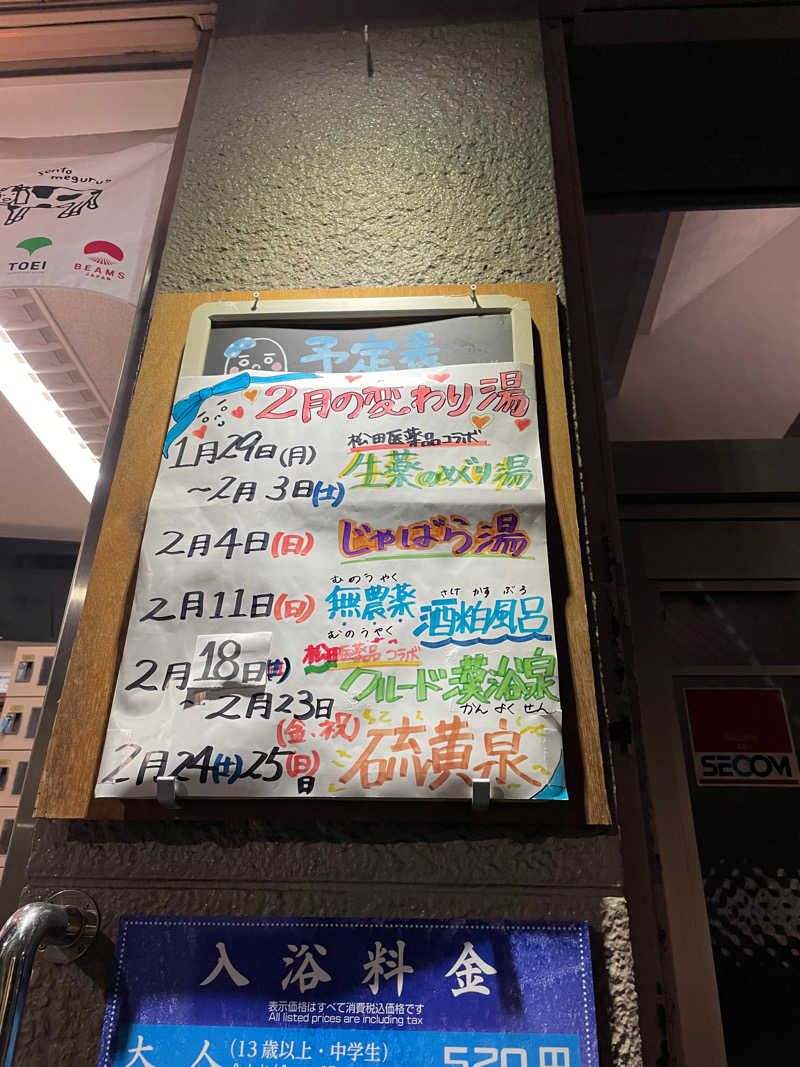 sento
meguru
TOEI
BEAMS
JAPAN
予定表
2月の変わり湯
1月29日(月)
～2月3日(土)
松田医薬品コラボ
生薬のめぐり湯
2月4日(日)
じゃばら湯
2月11日(日)
むのうやく
無農薬
さけかすぶろ
酒粕風呂
むのうやく
2月18日
～2月23日
(金、祝)
松田医薬品コラボ
クルード漢浴泉
かんよくせん
2月24(土)25(日)
日
硫黄泉
SECOM
入浴料金
表示価格はすべて消費税込価格です
All listed prices are including tax
大人
(13歳以上・中学生)
520円